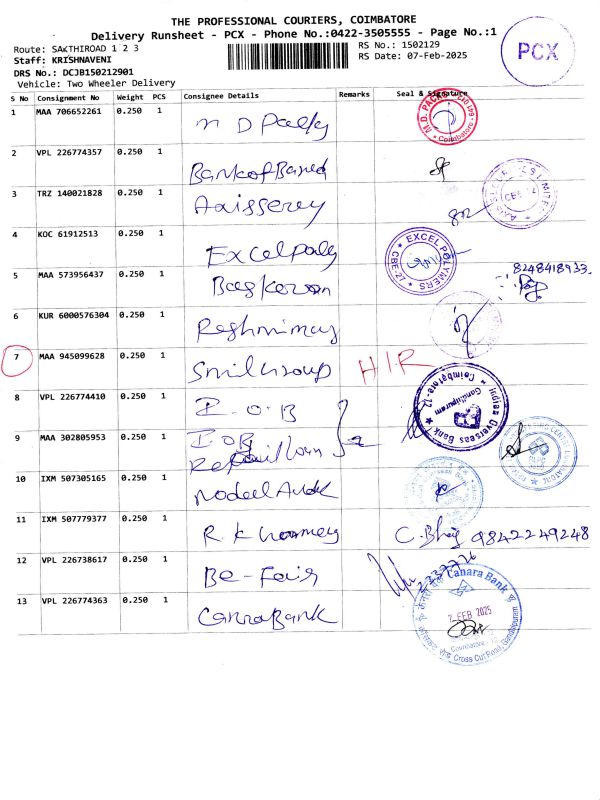 THE PROFESSIONAL COURIERS, COIMBATORE
Delivery Runsheet - PCX - Phone No.:0422-3505555 - Page No.:1
Route: SAKTHIROAD 1 2 3
RS No.: 1502129
PCX
Staff: KRISHNAVENI
RS Date: 07-Feb-2025
DRS No.: DCJB150212901
Vehicle: Two Wheeler Delivery
S No Consignment No Weight PCS Consignee Details Remarks Seal & Signature
1 MAA 706652261 0.250 1
2 VPL 226774357 0.250 1 Bank of Baroda
3 TRZ 140021828 0.250 1
4 KOC 61912513 0.250 1 Excel Poly
EXCEL POLYMERS CBE-27
5 MAA 573956437 0.250 1 8248418933
6 KUR 6000576304 0.250 1
7 MAA 945099628 0.250 1 Smil Group
8 VPL 226774410 0.250 1 I.O.B
Indian Overseas Bank Gandhipuram Coimbatore-12
9 MAA 302805953 0.250 1 I.O.B
10 IXM 507305165 0.250 1
11 IXM 507779377 0.250 1 9842249248
12 VPL 226738617 0.250 1 Be-Fair
13 VPL 226774363 0.250 1 Canara Bank
Canara Bank
7 FEB 2025
Cross Cut Road, Gandhipuram